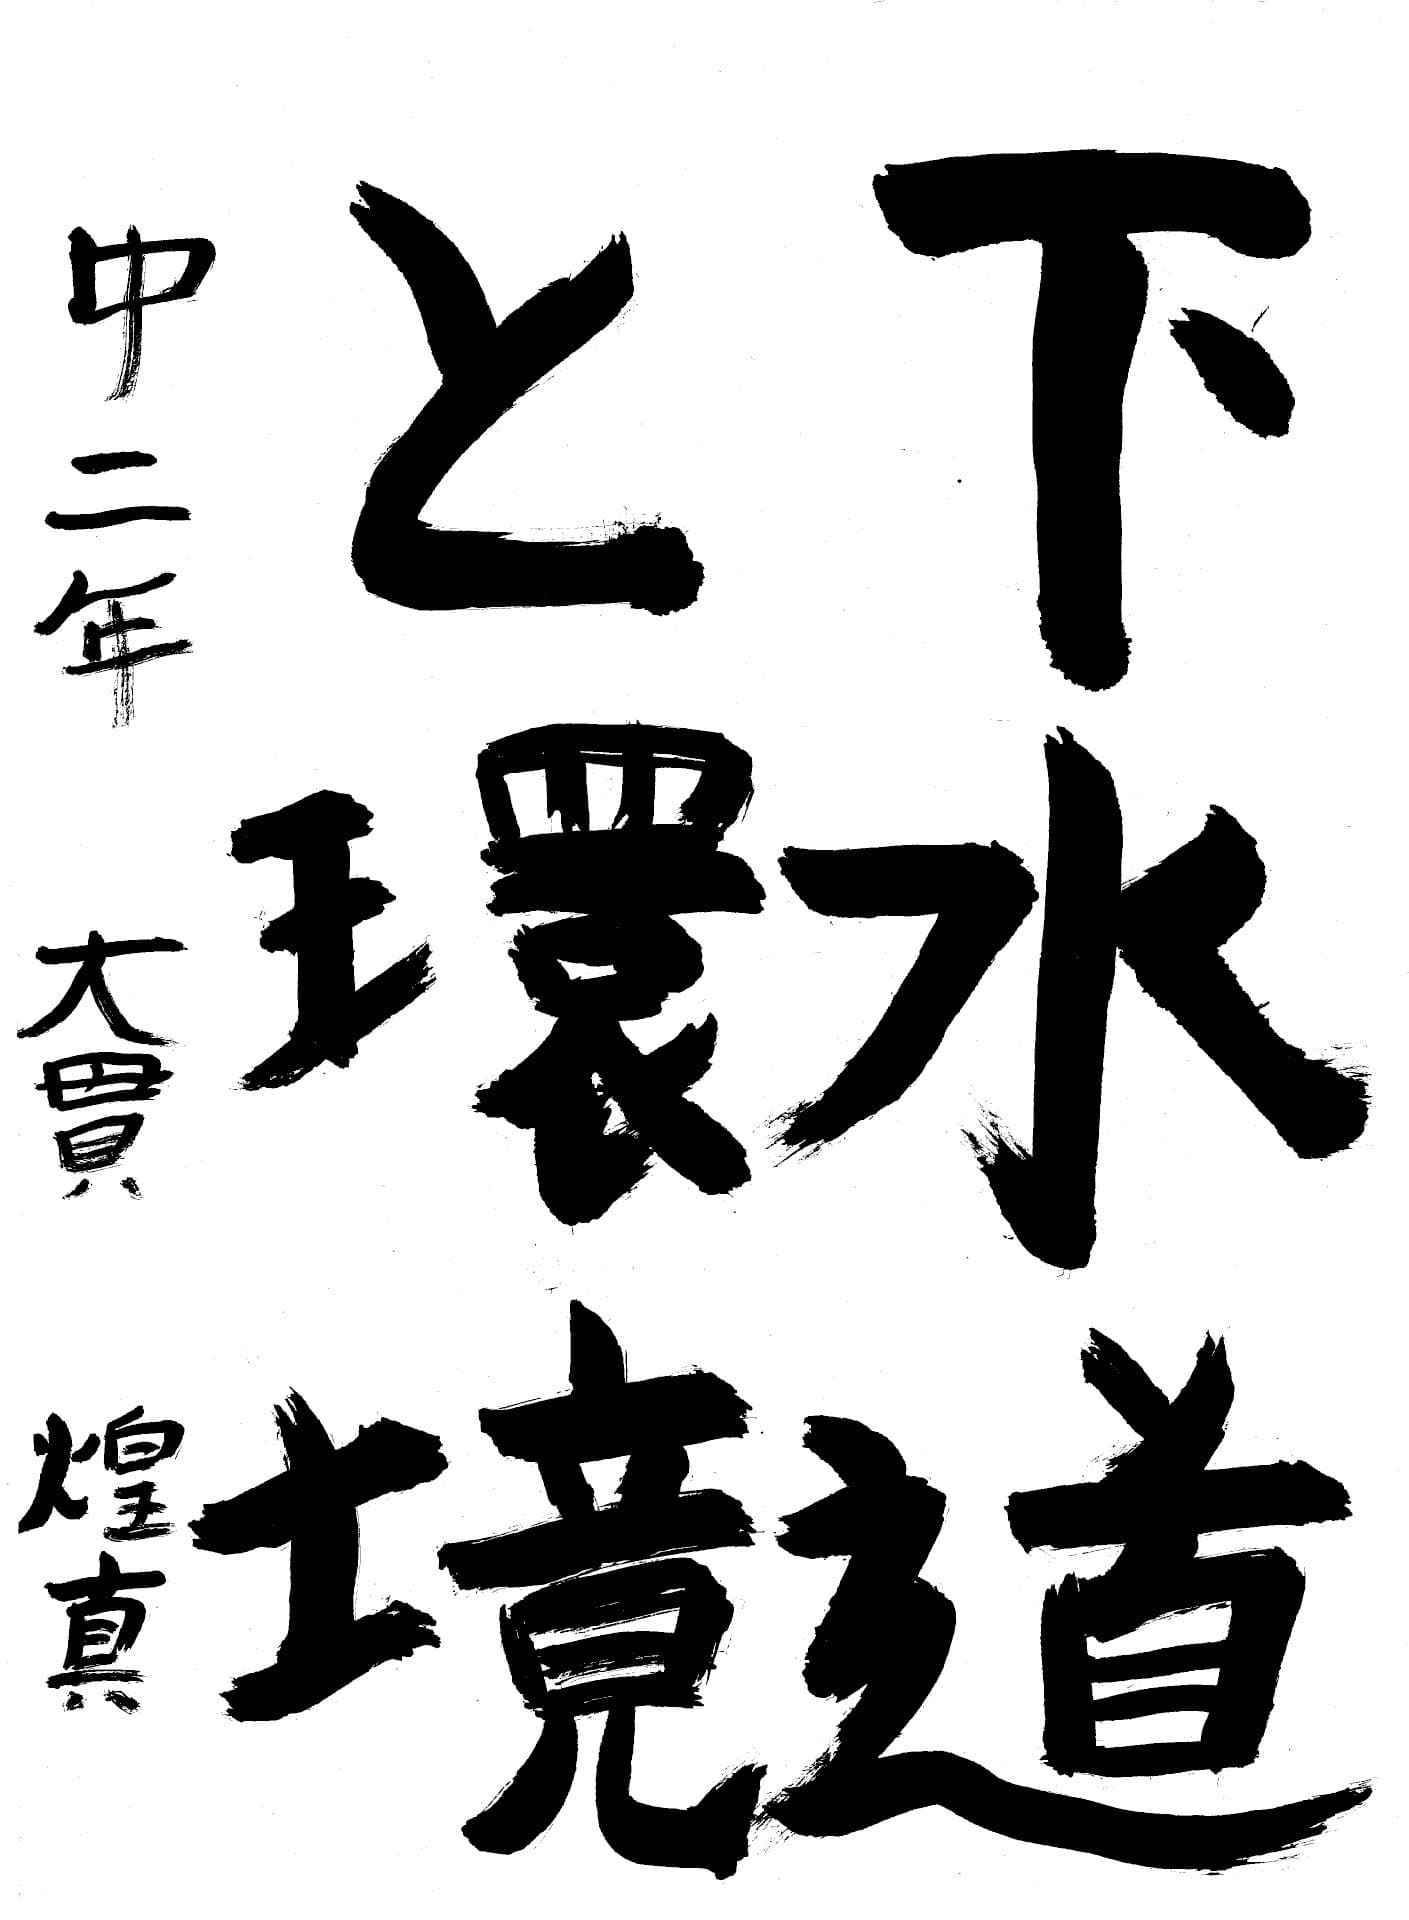 下水道
と環境
中二年 大貫 煌真